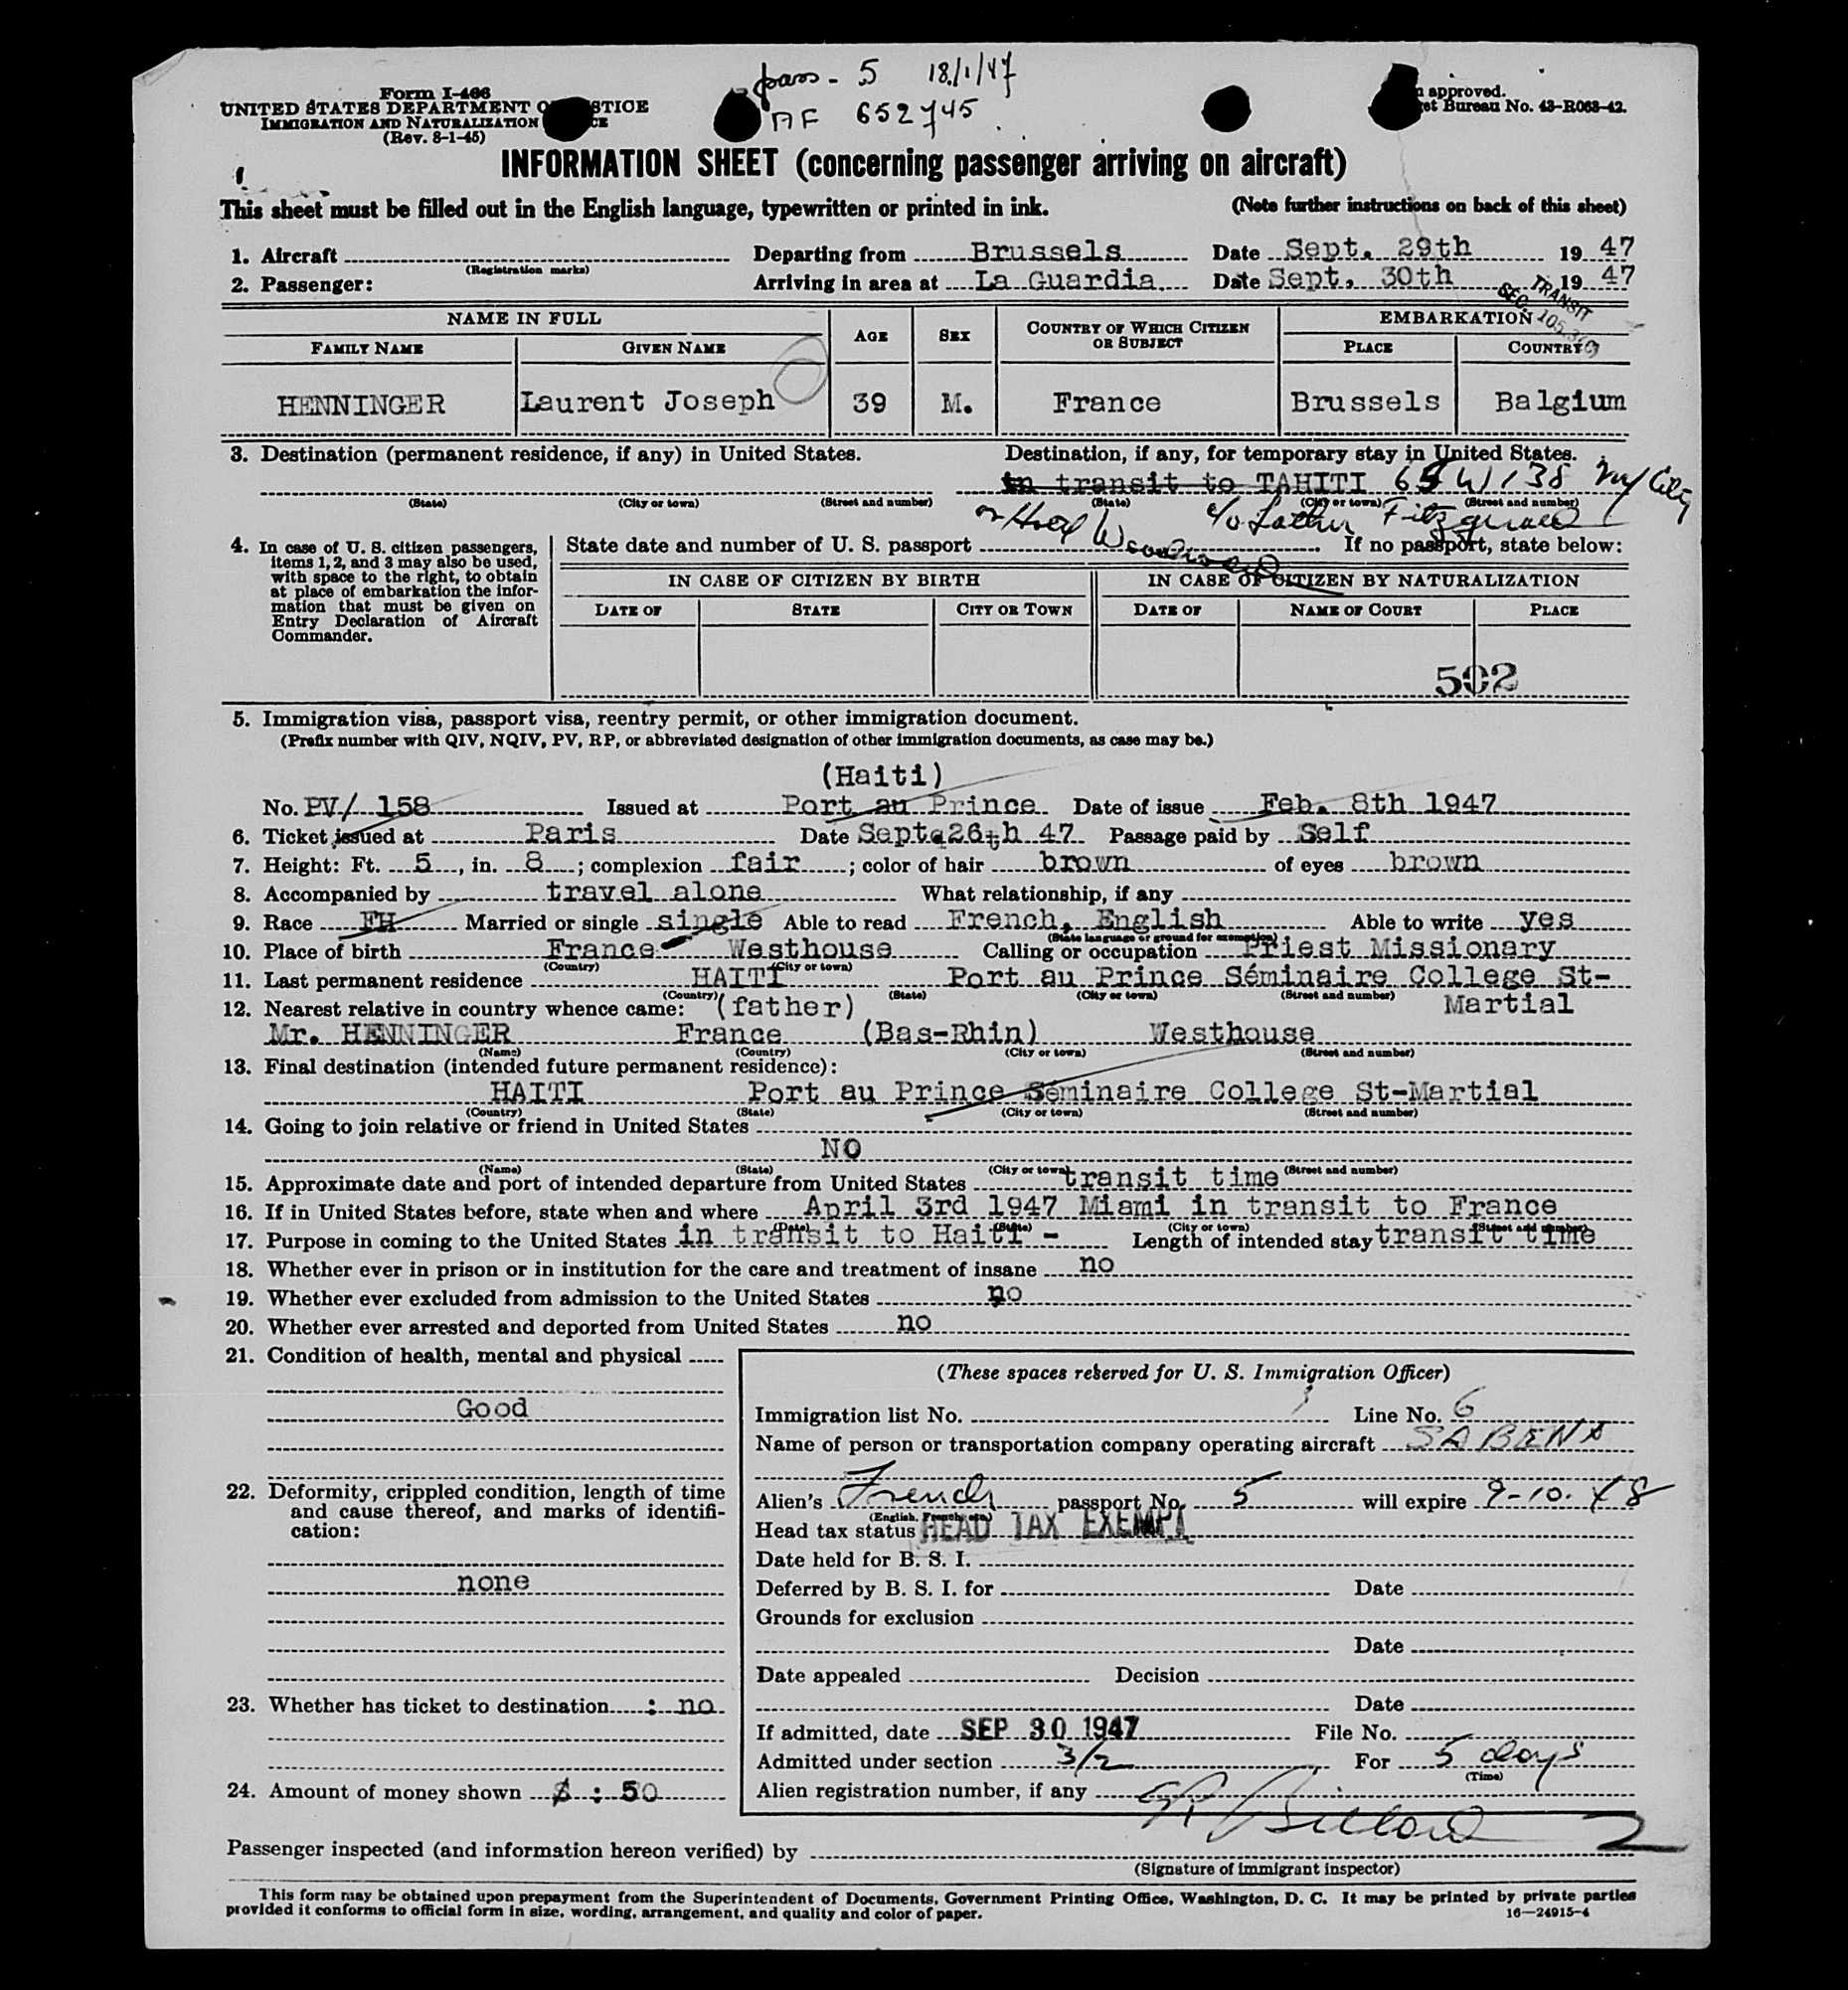 pass - 5 18/1/47
AF 652745
Form I-466
UNITED STATES DEPARTMENT OF JUSTICE
IMMIGRATION AND NATURALIZATION
(Rev. 8-1-45)
approved.
Bureau No. 43-R068-42.
INFORMATION SHEET (concerning passenger arriving on aircraft)
This sheet must be filled out in the English language, typewritten or printed in ink. (Note further instructions on back of this sheet)
1. Aircraft Departing from Brussels Date Sept. 29th 19 47
(Registration marks)
2. Passenger: Arriving in area at La Guardia Date Sept. 30th 19 47
TRANSIT
SEC. 105.3
NAME IN FULL AGE SEX COUNTRY OF WHICH CITIZEN OR SUBJECT EMBARKATION
FAMILY NAME GIVEN NAME PLACE COUNTRY
HENNINGER Laurent Joseph 39 M. France Brussels Balgium
3. Destination (permanent residence, if any) in United States. Destination, if any, for temporary stay in United States.
in transit to TAHITI W 138 NY City
(State) (City or town) (Street and number) (State) (City or town) (Street and number)
or Hotel c/o Father Fitzgerald
4. In case of U. S. citizen passengers, items 1, 2, and 3 may also be used, with space to the right, to obtain at place of embarkation the information that must be given on Entry Declaration of Aircraft Commander.
State date and number of U. S. passport If no passport, state below:
IN CASE OF CITIZEN BY BIRTH IN CASE OF CITIZEN BY NATURALIZATION
DATE OF STATE CITY OR TOWN DATE OF NAME OF COURT PLACE
502
5. Immigration visa, passport visa, reentry permit, or other immigration document.
(Prefix number with QIV, NQIV, PV, RP, or abbreviated designation of other immigration documents, as case may be.)
(Haiti)
No. PV/ 158 Issued at Port au Prince Date of issue Feb. 8th 1947
6. Ticket issued at Paris Date Sept. 26th 47 Passage paid by Self
7. Height: Ft. 5, in. 8; complexion fair; color of hair brown of eyes brown
8. Accompanied by travel alone What relationship, if any
9. Race FH Married or single single Able to read French, English Able to write yes
(State language or ground for exemption)
10. Place of birth France Westhouse Calling or occupation Priest Missionary
(Country) (City or town)
11. Last permanent residence HAITI Port au Prince Séminaire College St-
(Country) (State) (City or town) (Street and number)
12. Nearest relative in country whence came: (father) Martial
Mr. HENNINGER France (Bas-Rhin) Westhouse
(Name) (Country) (City or town) (Street and number)
13. Final destination (intended future permanent residence):
HAITI Port au Prince Séminaire College St-Martial
(Country) (State) (City or town) (Street and number)
14. Going to join relative or friend in United States
NO
(Name) (State) (City or town) (Street and number)
15. Approximate date and port of intended departure from United States transit time
16. If in United States before, state when and where April 3rd 1947 Miami in transit to France
(Date) (State) (City or town) (Street and number)
17. Purpose in coming to the United States in transit to Haiti - Length of intended stay transit time
18. Whether ever in prison or in institution for the care and treatment of insane no
19. Whether ever excluded from admission to the United States no
20. Whether ever arrested and deported from United States no
21. Condition of health, mental and physical
Good
22. Deformity, crippled condition, length of time and cause thereof, and marks of identification:
none
23. Whether has ticket to destination : no
24. Amount of money shown $ : 50
(These spaces reserved for U. S. Immigration Officer)
Immigration list No. Line No. 6
Name of person or transportation company operating aircraft SABENA
Alien's French passport No. 5 will expire 9-10-48
(English, French, etc.)
Head tax status HEAD TAX EXEMPT
Date held for B. S. I.
Deferred by B. S. I. for Date
Grounds for exclusion
Date
Date appealed Decision
Date
If admitted, date SEP 30 1947 File No.
Admitted under section 3/2 For 5 days
(Time)
Alien registration number, if any
Passenger inspected (and information hereon verified) by
(Signature of immigrant inspector)
This form may be obtained upon prepayment from the Superintendent of Documents, Government Printing Office, Washington, D. C. It may be printed by private parties
provided it conforms to official form in size, wording, arrangement, and quality and color of paper. 16—24915-4